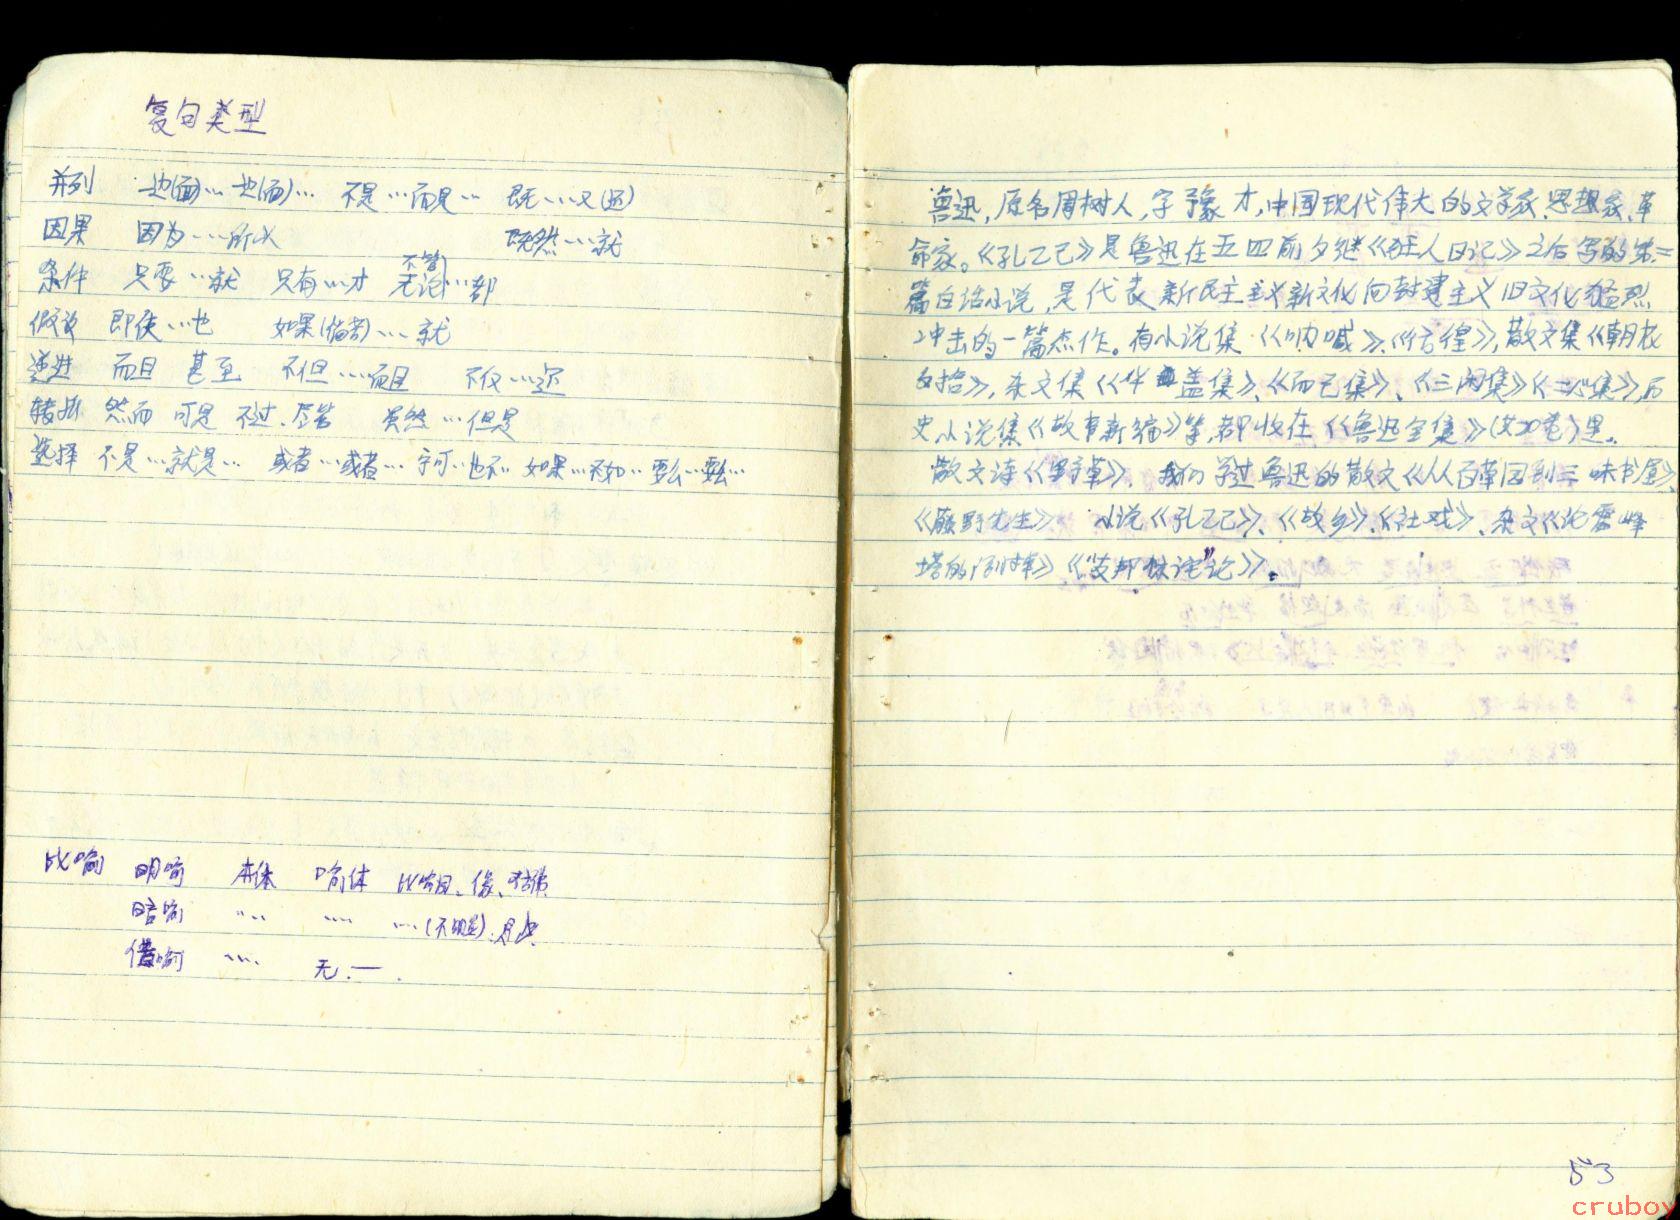 复句类型
并列 一边(面)…一边(面)… 不是…而是… 既…又(还)
因果 因为…所以 既然…就
不管
条件 只要…就 只有…才 无论…都
假设 即使…也 如果(倘若)…就
递进 而且 甚至 不但…而且 不仅…还
转折 然而 可是 不过、尽管 虽然…但是
选择 不是…就是… 或者…或者… 宁可…也不 如果…不如… 要么…要么…
比喻 明喻 本体 喻体 比喻词、像、犹
暗喻 …… …… ……(不明显).是
借喻 …… 无.—.
鲁迅,原名周树人,字豫才,中国现代伟大的文学家、思想家、革
命家。《孔乙己》是鲁迅在五四前夕继《狂人日记》之后写的第二
篇白话小说,是代表新民主主义新文化向封建主义旧文化猛烈
冲击的一篇杰作。有小说集《呐喊》、《彷徨》,散文集《朝花
夕拾》,杂文集《华盖集》、《而已集》、《三闲集》《二心集》,历
史小说集《故事新编》等,都收在《鲁迅全集》(共20卷)里。
散文诗《野草》. 我们学过鲁迅的散文《从百草园到三味书屋》、
《藤野先生》 小说《孔乙己》、《故乡》、《社戏》、杂文《论雷峰
塔的倒掉》《"友邦惊诧"论》。
53
cruboy